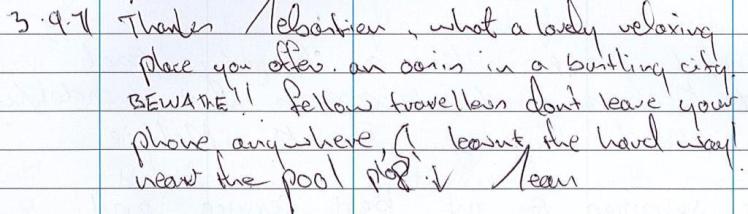 3.9.11 Thanks Sebastien, what a lovely relaxing
place you offer. an oasis in a bustling city.
BEWARE!! fellow travellers don't leave your
phone anywhere, I learnt the hard way!
near the pool plop! ↓ Sean